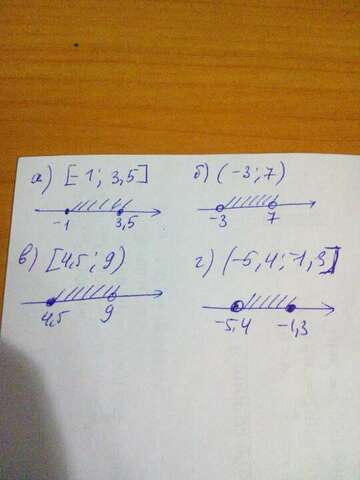 а) [-1; 3,5]
-1 3,5
б) (-3; 7)
-3 7
в) [4,5; 9)
4,5 9
г) (-5,4; -1,3]
-5,4 -1,3